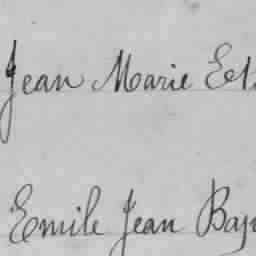 Jean Marie Et
Emile Jean Bap